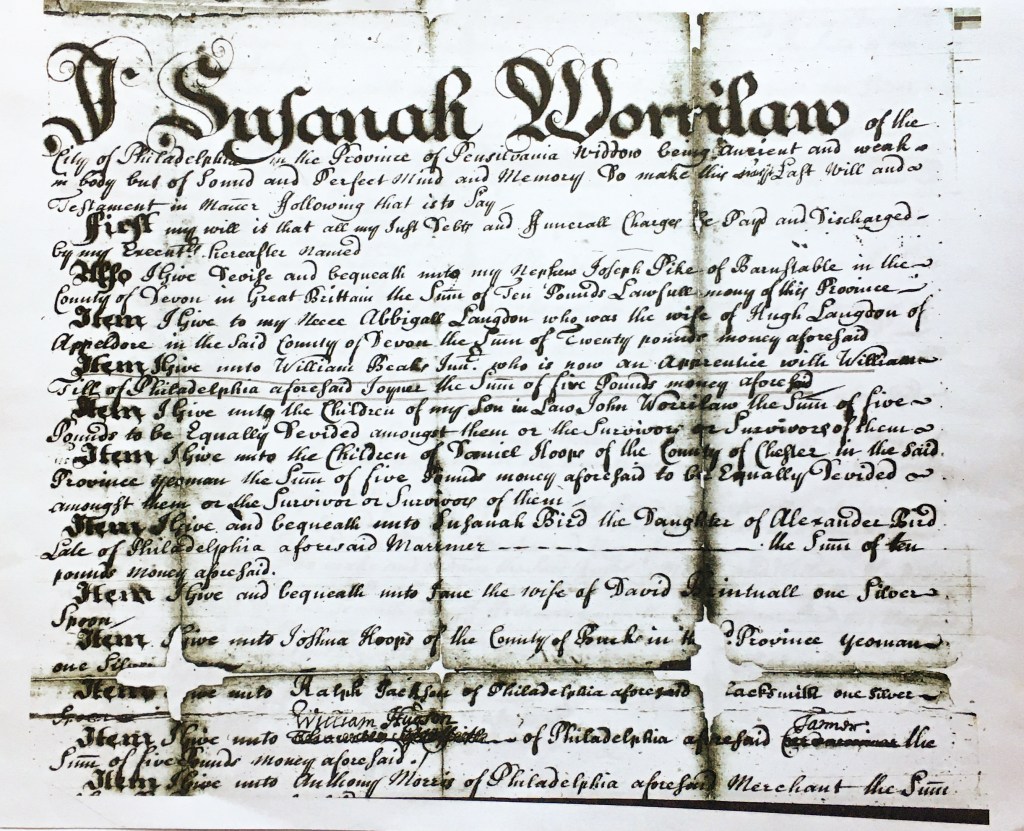 I Susanah Worrilaw of the
City of Philadelphia in the Province of Pensilvania Widdow being Ancient and weak
in body but of Sound and Perfect Mind and Memory Do make this my Last Will and
Testament in Maner following that is to Say
First my will is that all my Just Debts and Funerall Charges be Payd and Discharged
by my Execut.rs hereafter named
Also I Give Devise and bequeath unto my Nephew Joseph Pike of Barnstable in the
County of Devon in Great Brittain the Sum̅ of Ten Pounds Lawfull mony of this Province
Item I Give to my Neece Abbigall Langdon who was the wife of Hugh Langdon of
Appeldore in the Said County of Devon the Sum of Twenty pounds money aforesaid
Item I Give unto William Beaks Jun.r who is now an Apprentice with William
Till of Philadelphia aforesaid Joyner the Sum of five Pounds money aforesaid
Item I Give unto the Children of my Son in Law John Worrilaw the Sum̅ of five
Pounds to be Equally Devided amongst them or the Survivors or Survivors of them
Item I Give unto the Children of Daniel Hoops of the County of Chester in the Said
Province yeoman the Sum̅ of five Pounds money aforesaid to be Equally Devided
amongst them or the Survivor or Survivors of them
Item I Give and bequeath unto Susanah Bird the Daughter of Alexander Bird
Late of Philadelphia aforesaid Marriner the Sum̅ of ten
pounds money aforesaid.
Item I Give and bequeath unto Jane the wife of David Brintnall one Silver
Spoon
Item I Give unto Joshua Hoops of the County of Bucks in th Province yeoman
one Silver
Item ive unto Ralph Jackson of Philadelphia aforesaid lacksmith one Silver
Spoon
William Hudson Tanner
Item I Give unto of Philadelphia aforesaid the
Sum̅ of five Pounds money aforesaid
Item I Give unto Anthony Morris of Philadelphia aforesaid Merchant the Sum̅